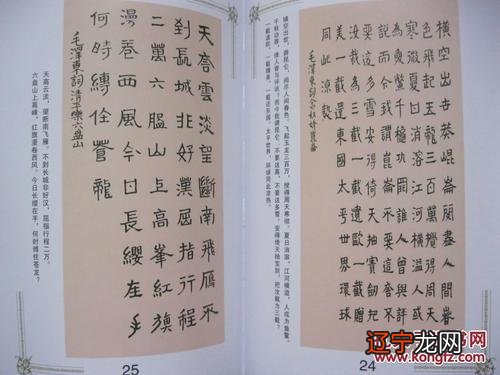 橫空出世莽崑崙閱盡人間春
色飛起玉龍三百萬攪得周天
寒徹夏日消溶江河橫溢人或
為魚鱉千秋功罪誰人曾與評
說而今我謂崑崙不要這高不
要這多雪安得倚天抽寶劍把
汝裁為三截一截遺歐一截贈
美一截還東國太平世界環球
同此涼熱
毛澤東詞念奴嬌崑崙
横空出世，莽昆仑，阅尽人间春色。飞起玉龙三百万，搅得周天寒彻。夏日消溶，江河横溢，人或为鱼鳖。
千秋功罪，谁人曾与评说？而今我谓昆仑，不要这高，不要这多雪。安得倚天抽宝剑，把汝裁为三截？
一截遗欧，一截赠美，一截还东国。太平世界，环球同此凉热。
24
天高雲淡望斷南飛雁不
到長城非好漢屈指行程
二萬六盤山上高峯紅旗
漫卷西風今日長纓在手
何時縛住蒼龍
毛澤東詞清平樂六盤山
天高云淡，望断南飞雁。不到长城非好汉，屈指行程二万。
六盘山上高峰，红旗漫卷西风。今日长缨在手，何时缚住苍龙？
25
辽宁龙网
www.kongfz.com